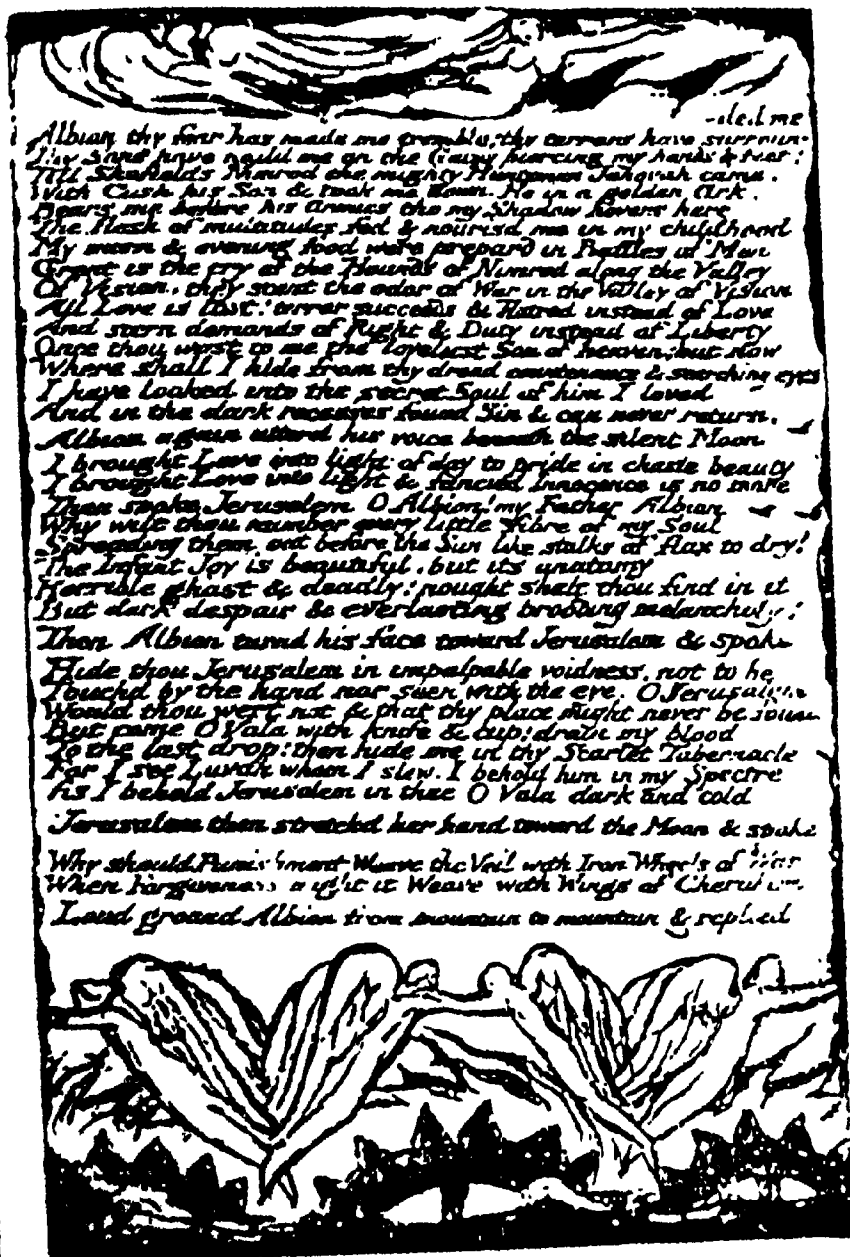 -ded me
Albion thy fear has made me tremble; thy terrors have surroun-
Thy Sons have naild me on the Gates piercing my hands & feet:
Till Skofields Nimrod the mighty Huntsman Jehovah came,
With Cush his Son & took me down. He in a golden Ark,
Bears me before his Armies tho my Shadow hovers here
The flesh of multitudes fed & nourisd me in my childhood
My morn & evening food were prepard in Battles of Men
Great is the cry of the Hounds of Nimrod along the Valley
Of Vision, they scent the odor of War in the Valley of Vision
All Love is lost! terror succeeds & Hatred instead of Love
And stern demands of Right & Duty instead of Liberty
Once thou wast to me the loveliest Son of heaven; but now
Where shall I hide from thy dread countenance & searching eyes
I have looked into the secret Soul of him I loved
And in the dark recesses found Sin & can never return.
Albion again utterd his voice beneath the silent Moon
I brought Love into light of day to pride in chaste beauty
I brought Love into light & fancied Innocence is no more
Then spoke Jerusalem O Albion! my Father Albion
Why wilt thou number every little fibre of my Soul
Spreading them out before the Sun like stalks of flax to dry?
The Infant Joy is beautiful, but its anatomy
Horrible ghast & deadly! nought shalt thou find in it
But dark despair & everlasting brooding melancholy!
Then Albion turnd his face toward Jerusalem & spoke
Hide thou Jerusalem in impalpable voidness, not to be
Touchd by the hand nor seen with the eye. O Jerusalem
Would thou wert not & that thy place might never be found
But come O Vala with knife & cup: drain my blood
To the last drop: then hide me in thy Scarlet Tabernacle
For I see Luvah whom I slew. I behold him in my Spectre
As I behold Jerusalem in thee O Vala dark and cold
Jerusalem then stretchd her hand toward the Moon & spoke
Why should Punishment Weave the Veil with Iron Wheels of War
When Forgiveness might it Weave with Wings of Cherubim
Loud groand Albion from mountain to mountain & replied